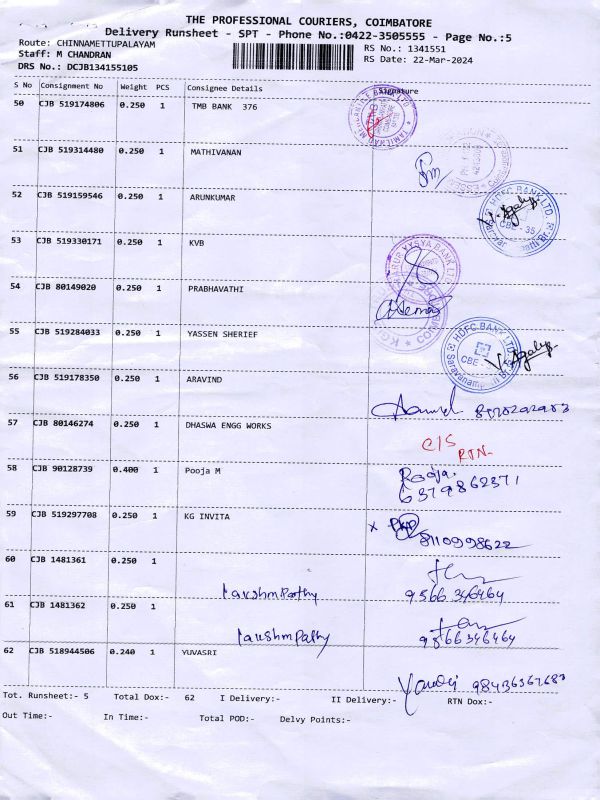 THE PROFESSIONAL COURIERS, COIMBATORE
Delivery Runsheet - SPT - Phone No.:0422-3505555 - Page No.:5
Route: CHINNAMETTUPALAYAM
RS No.: 1341551
Staff: M CHANDRAN
RS Date: 22-Mar-2024
DRS No.: DCJB134155105
S No Consignment No Weight PCS Consignee Details Signature
50 CJB 519174806 0.250 1 TMB BANK 376
51 CJB 519314480 0.250 1 MATHIVANAN
52 CJB 519159546 0.250 1 ARUNKUMAR
HDFC BANK LTD
CBE - 35
53 CJB 519330171 0.250 1 KVB
KARUR VYSYA BANK LTD
54 CJB 80149020 0.250 1 PRABHAVATHI
55 CJB 519284033 0.250 1 YASSEN SHERIEF
HDFC BANK LTD
CBE -
56 CJB 519178350 0.250 1 ARAVIND
57 CJB 80146274 0.250 1 DHASWA ENGG WORKS
C/S
RTN-
58 CJB 90128739 0.400 1 Pooja M
Pooja.
6379862371
59 CJB 519297708 0.250 1 KG INVITA
x
8110998622
60 CJB 1481361 0.250 1
Lakshmpathy
9566 346464
61 CJB 1481362 0.250 1
Lakshmpathy
9566346464
62 CJB 518944506 0.240 1 YUVASRI
Tot. Runsheet:- 5 Total Dox:- 62 I Delivery:- II Delivery:- RTN Dox:-
Out Time:- In Time:- Total POD:- Delvy Points:-